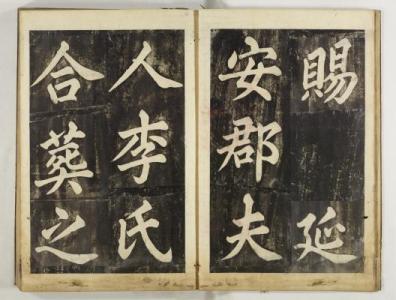 賜延
安郡夫
人李氏
合葬之